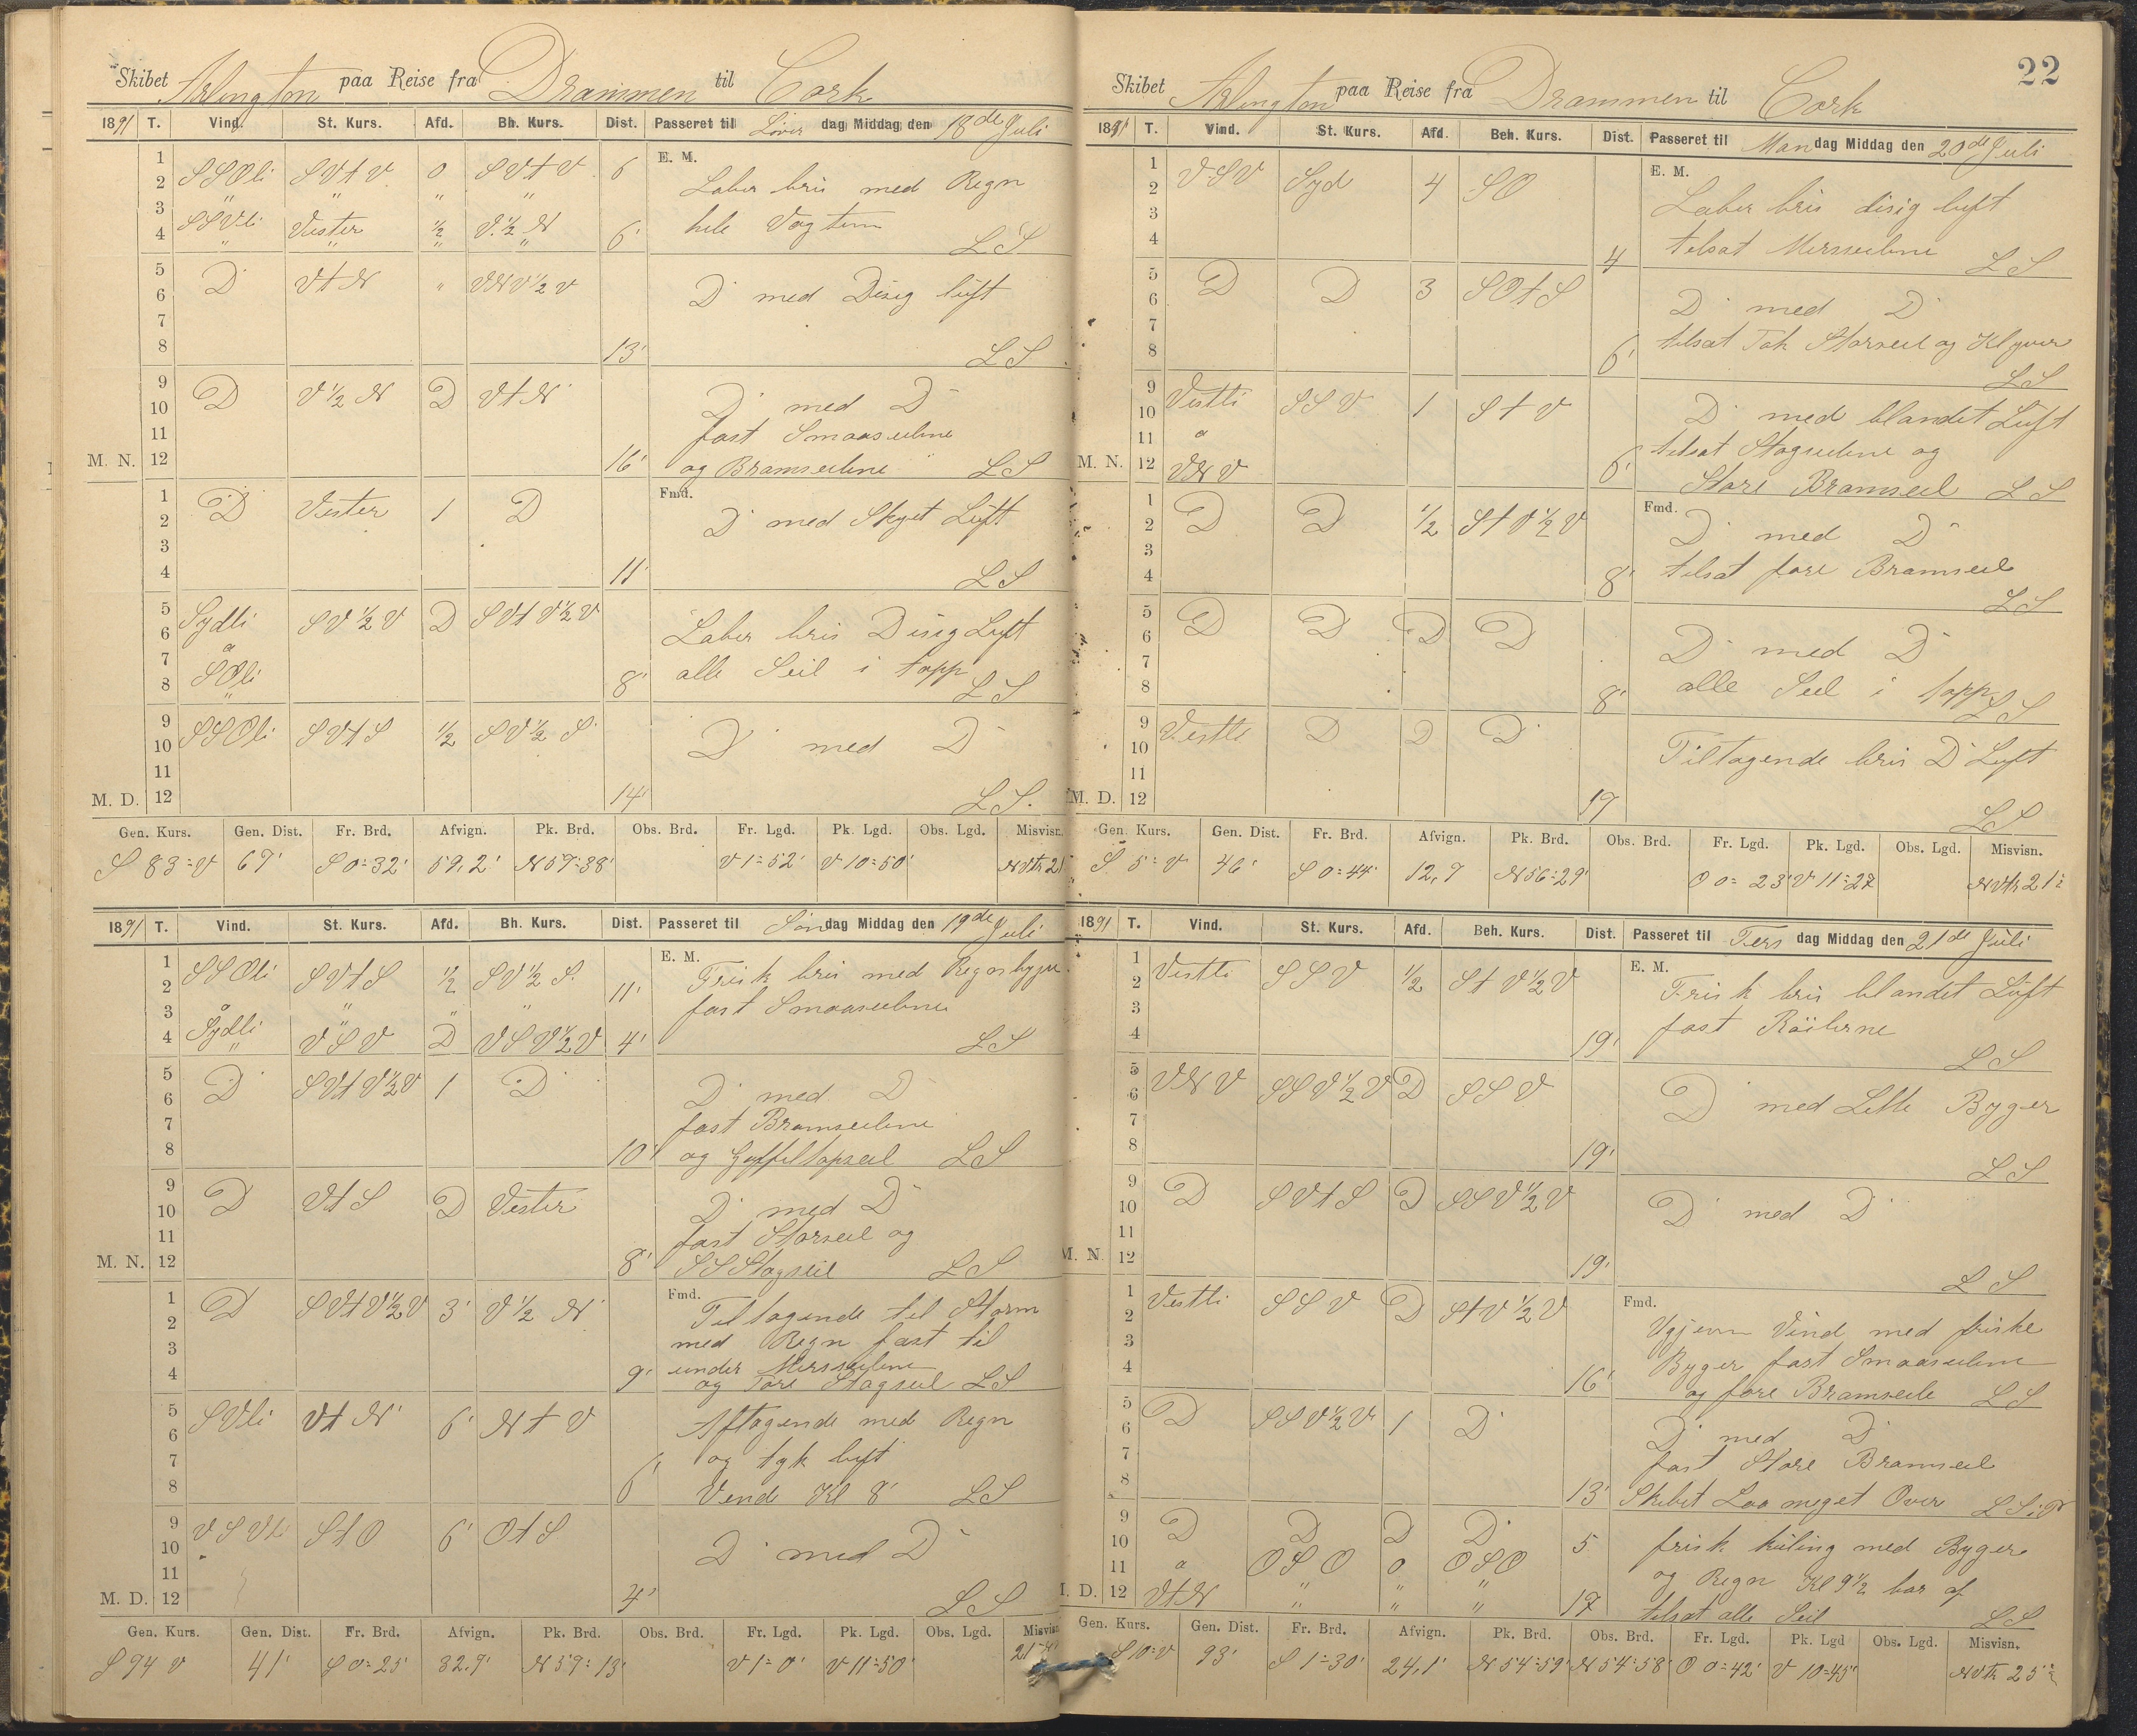 Skibet Arlington paa Reise fra Drammen til Cork
1891 T. Vind. St. Kurs. Afd. Bh. Kurs. Dist. Passeret til Løver dag Middag den 18de Juli
E. M.
1
2 SSOli SVtV 0 SVtV 6 Laber bris med Regn
3 " " " "
4 SSVli Vester ½ V.½ N 6' hele Vagten
" " " " LS
5
6 D VtN " VNV½V D med Disig luft
7
8 13' LS
9
10 D V½N D VtN D med D
11 fast Smaaseilene
M. N. 12 16' og Bramseilene LS
Fmd.
1
2 D Vester 1 D D med Skyet Luft
3
4 11' LS
5
6 Sydli SV½V D SVtV½V Laber bris Disig Luft
7 a
8 SOli 8' alle Seil i topp LS
"
9
10 SSOli SVtS ½ SV½S D med D
11
M. D. 12 14' LS.
Gen. Kurs. Gen. Dist. Fr. Brd. Afvign. Pk. Brd. Obs. Brd. Fr. Lgd. Pk. Lgd. Obs. Lgd. Misvisn.
S 83=V 67' S 0=32' 59,2' N 57=38' V 1=52' V 10=50' NVtr 21
1891 T. Vind. St. Kurs. Afd. Bh. Kurs. Dist. Passeret til Søn dag Middag den 19de Juli
E. M.
1
2 SSOli SVtS ½ SV½S. 11' Frisk bris med Regnbyger
3 a " " " fast Smaaseilene
4 Sydli VSV D VSV½V 4' LS
5
6 D SVtV½V 1 D D med D
7 fast Bramseilene
8 10' og Gaffeltopseil LS
9
10 D VtS D Vester D med D
11 fast Storseil og
M. N. 12 8' SS Stagseil LS
Fmd.
1
2 D SVtV½V 3' V½N Tiltagende til Storm
3 med Regn fast til
4 9' under Mersseilene
og Fore Stagseil LS
5
6 SVli VtN' 6' NtV Aftagende med Regn
7 og tyk luft
8 6' Vend Kl 8' LS
9
10 VSVli StO 6' OtS D med D
11
M. D. 12 4' LS
Gen. Kurs. Gen. Dist. Fr. Brd. Afvign. Pk. Brd. Obs. Brd. Fr. Lgd. Pk. Lgd. Obs. Lgd. Misvisn
S 94 V 41' S 0=25' 32,9' N 57=13' V 1=0' V 11=50'
22
Skibet Arlington paa Reise fra Drammen til Cork
1891 T. Vind. St. Kurs. Afd. Beh. Kurs. Dist. Passeret til Man dag Middag den 20de Juli
E. M.
1
2 VSV Syd 4 SO Laber bris disig luft
3
4 4 tilsat Mersseilene LS
5
6 D D 3 SOtS D med D
7
8 6' tilsat Tak Storseil og Klyver
LS
9
10 Vestli SSV 1 StV D med blandet Luft
11 a tilsat Stagseilene og
M. N. 12 VNV 6' Store Bramseil LS
Fmd.
1
2 D D ½ StV½V D med D
3
4 8' tilsat fore Bramseil
LS
5
6 D D D D D med D
7
8 8' alle Seil i topp LS
9
10 Vestli D D D Tiltagende bris D Luft
11
M. D. 12 17 LS
Gen. Kurs. Gen. Dist. Fr. Brd. Afvign. Pk. Brd. Obs. Brd. Fr. Lgd. Pk. Lgd. Obs. Lgd. Misvisn.
S 5=V 46' S 0=44' 12,7 N 56=29' O 0=23' V 11=27 NVtr 21
1891 T. Vind. St. Kurs. Afd. Beh. Kurs. Dist. Passeret til Ters dag Middag den 21de Juli
E. M.
1
2 Vestli SSV ½ StV½V Frisk bris blandet Luft
3
4 19' fast Röilerne
LS
5
6 VNV SSV½V D SSV D med Lette Byger
7
8 19' LS
9
10 D SVtS D SSV½V D med D
11
M. N. 12 19' LS
Fmd.
1
2 Vestli SSV D StV½V Ugjevn Vind med friske
3 Byger fast Smaaseilene
4 16' og fore Bramseile LS
5
6 D SSV½V 1 D D med D
7 fast Store Bramseil
8 13' Skibet Laa meget Over
9
10 D D D D 5 frisk küling med Byger
11 a OSO 0 OSO og Regn Kl 9½ bar af
M. D. 12 VtN " " " 17 tilsat alle Seil LS
Gen. Kurs. Gen. Dist. Fr. Brd. Afvign. Pk. Brd. Obs. Brd. Fr. Lgd. Pk. Lgd Obs. Lgd. Misvisn.
S 10=V 93' S 1=30' 24,1' N 54=59' N 54=58' O 0=42' V 10=45' NVtr 25